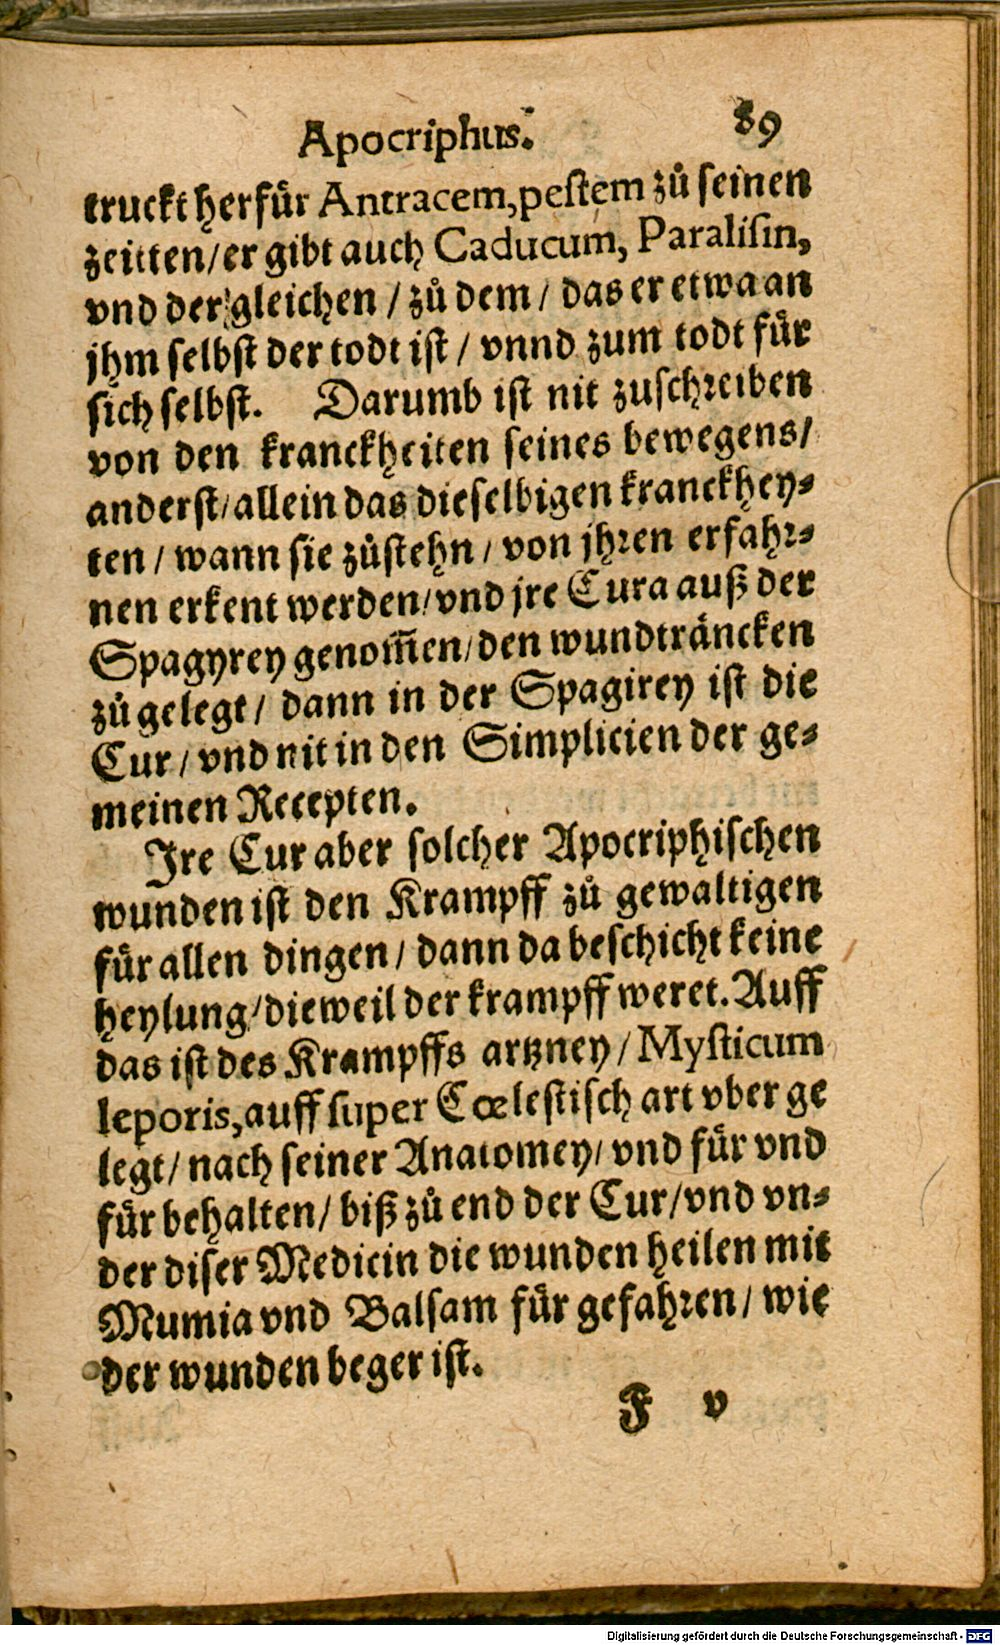 Apocriphus. 89
truckt herfür Antracem, pestem zů seinen
zeitten/ er gibt auch Caducum, Paralisin,
vnd der gleichen / zů dem / das er etwa an
jhm selbst der todt ist / vnnd zum todt für
sich selbst. Darumb ist nit zuschreiben
von den kranckheiten seines bewegens/
anderst/ allein das dieselbigen kranckhey⸗
ten / wann sie zůstehn / von jhren erfahr⸗
nen erkent werden/ vnd jre Cura auß der
Spagyrey genom̃en/ den wundträncken
zů gelegt / dann in der Spagirey ist die
Cur / vnd nit in den Simplicien der ge⸗
meinen Recepten.
Ire Cur aber solcher Apocriphischen
wunden ist den Krampff zů gewaltigen
für allen dingen / dann da beschicht keine
heylung/ dieweil der krampff weret. Auff
das ist des Krampffs artzney / Mysticum
leporis, auff super Cœlestisch art vber ge
legt/ nach seiner Anatomey/ vnd für vnd
für behalten/ biß zů end der Cur/ vnd vn⸗
der diser Medicin die wunden heilen mit
Mumia vnd Balsam für gefahren / wie
der wunden beger ist.
F v
Digitalisierung gefördert durch die Deutsche Forschungsgemeinschaft - DFG